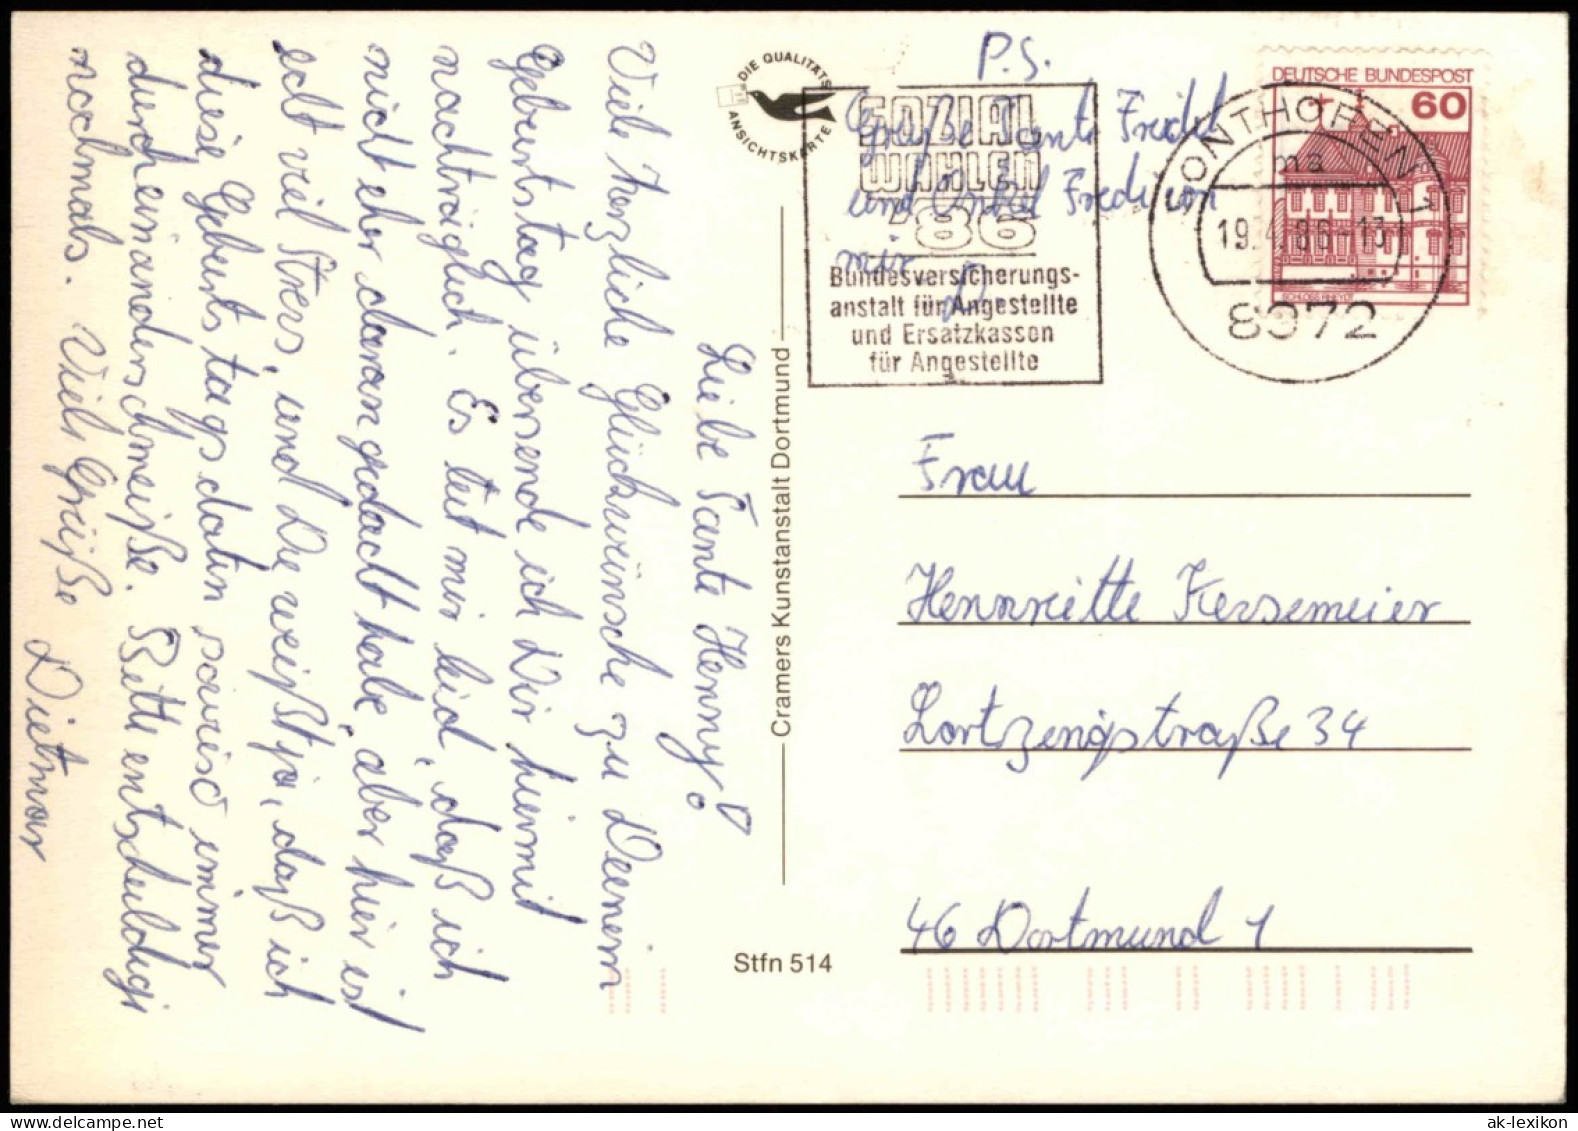 Liebe Tante Henny!
Viele herzliche Glückwünsche zu Deinem
Geburtstag übersende ich Dir hiermit
nachträglich. Es tut mir leid, daß ich
nicht eher daran gedacht habe, aber hier ist
echt viel Stress, und Du weißt ja, daß ich
diese Geburtstagsdaten sowieso immer
durcheinanderschmeiße. Bitte entschuldige
nochmals. Viele Grüße
Dietmar
DIE QUALITÄTS
ANSICHTSKARTE
Cramers Kunstanstalt Dortmund
Stfn 514
P.S.
Grüße Tante Friedel
und Onkel Fredi von
mir
D.
SOZIAL
WAHLEN
'86
Bundesversicherungs-
anstalt für Angestellte
und Ersatzkassen
für Angestellte
SONTHOFEN 1
ma
19.4.86-13
8972
DEUTSCHE BUNDESPOST
60
SCHLOSS RHEYDT
Frau
Hennriette Kersemeier
Lortzingstraße 34
46 Dortmund 1
ak-lexikon